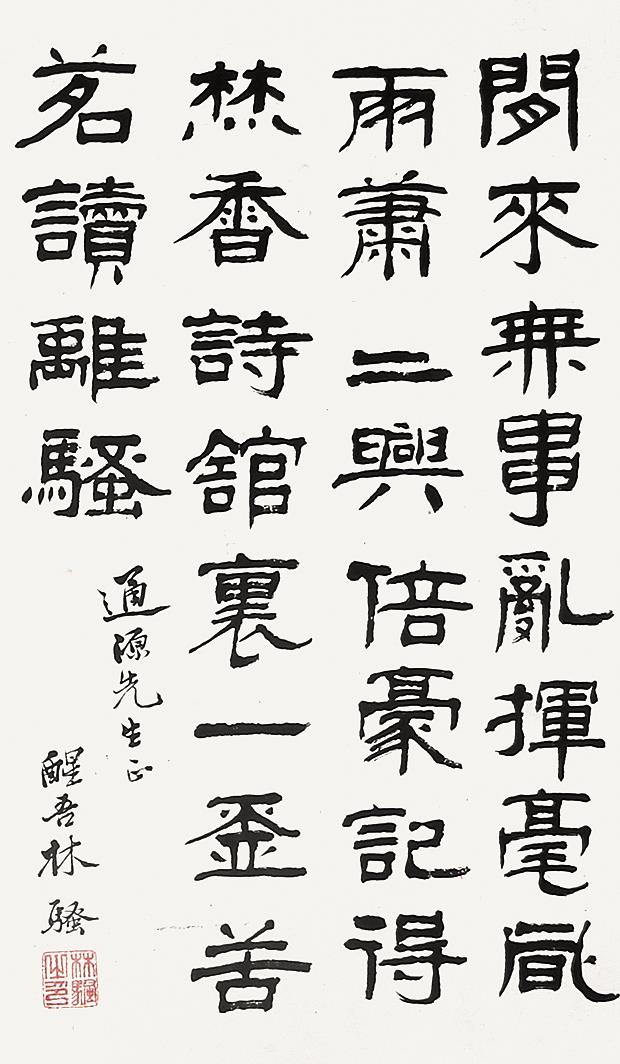 閒來無事亂揮毫風
雨蕭二興倍豪記得
焚香詩舘裏一盃苦
茗讀離騷
通源先生正
醒吾林騷
林騷之印